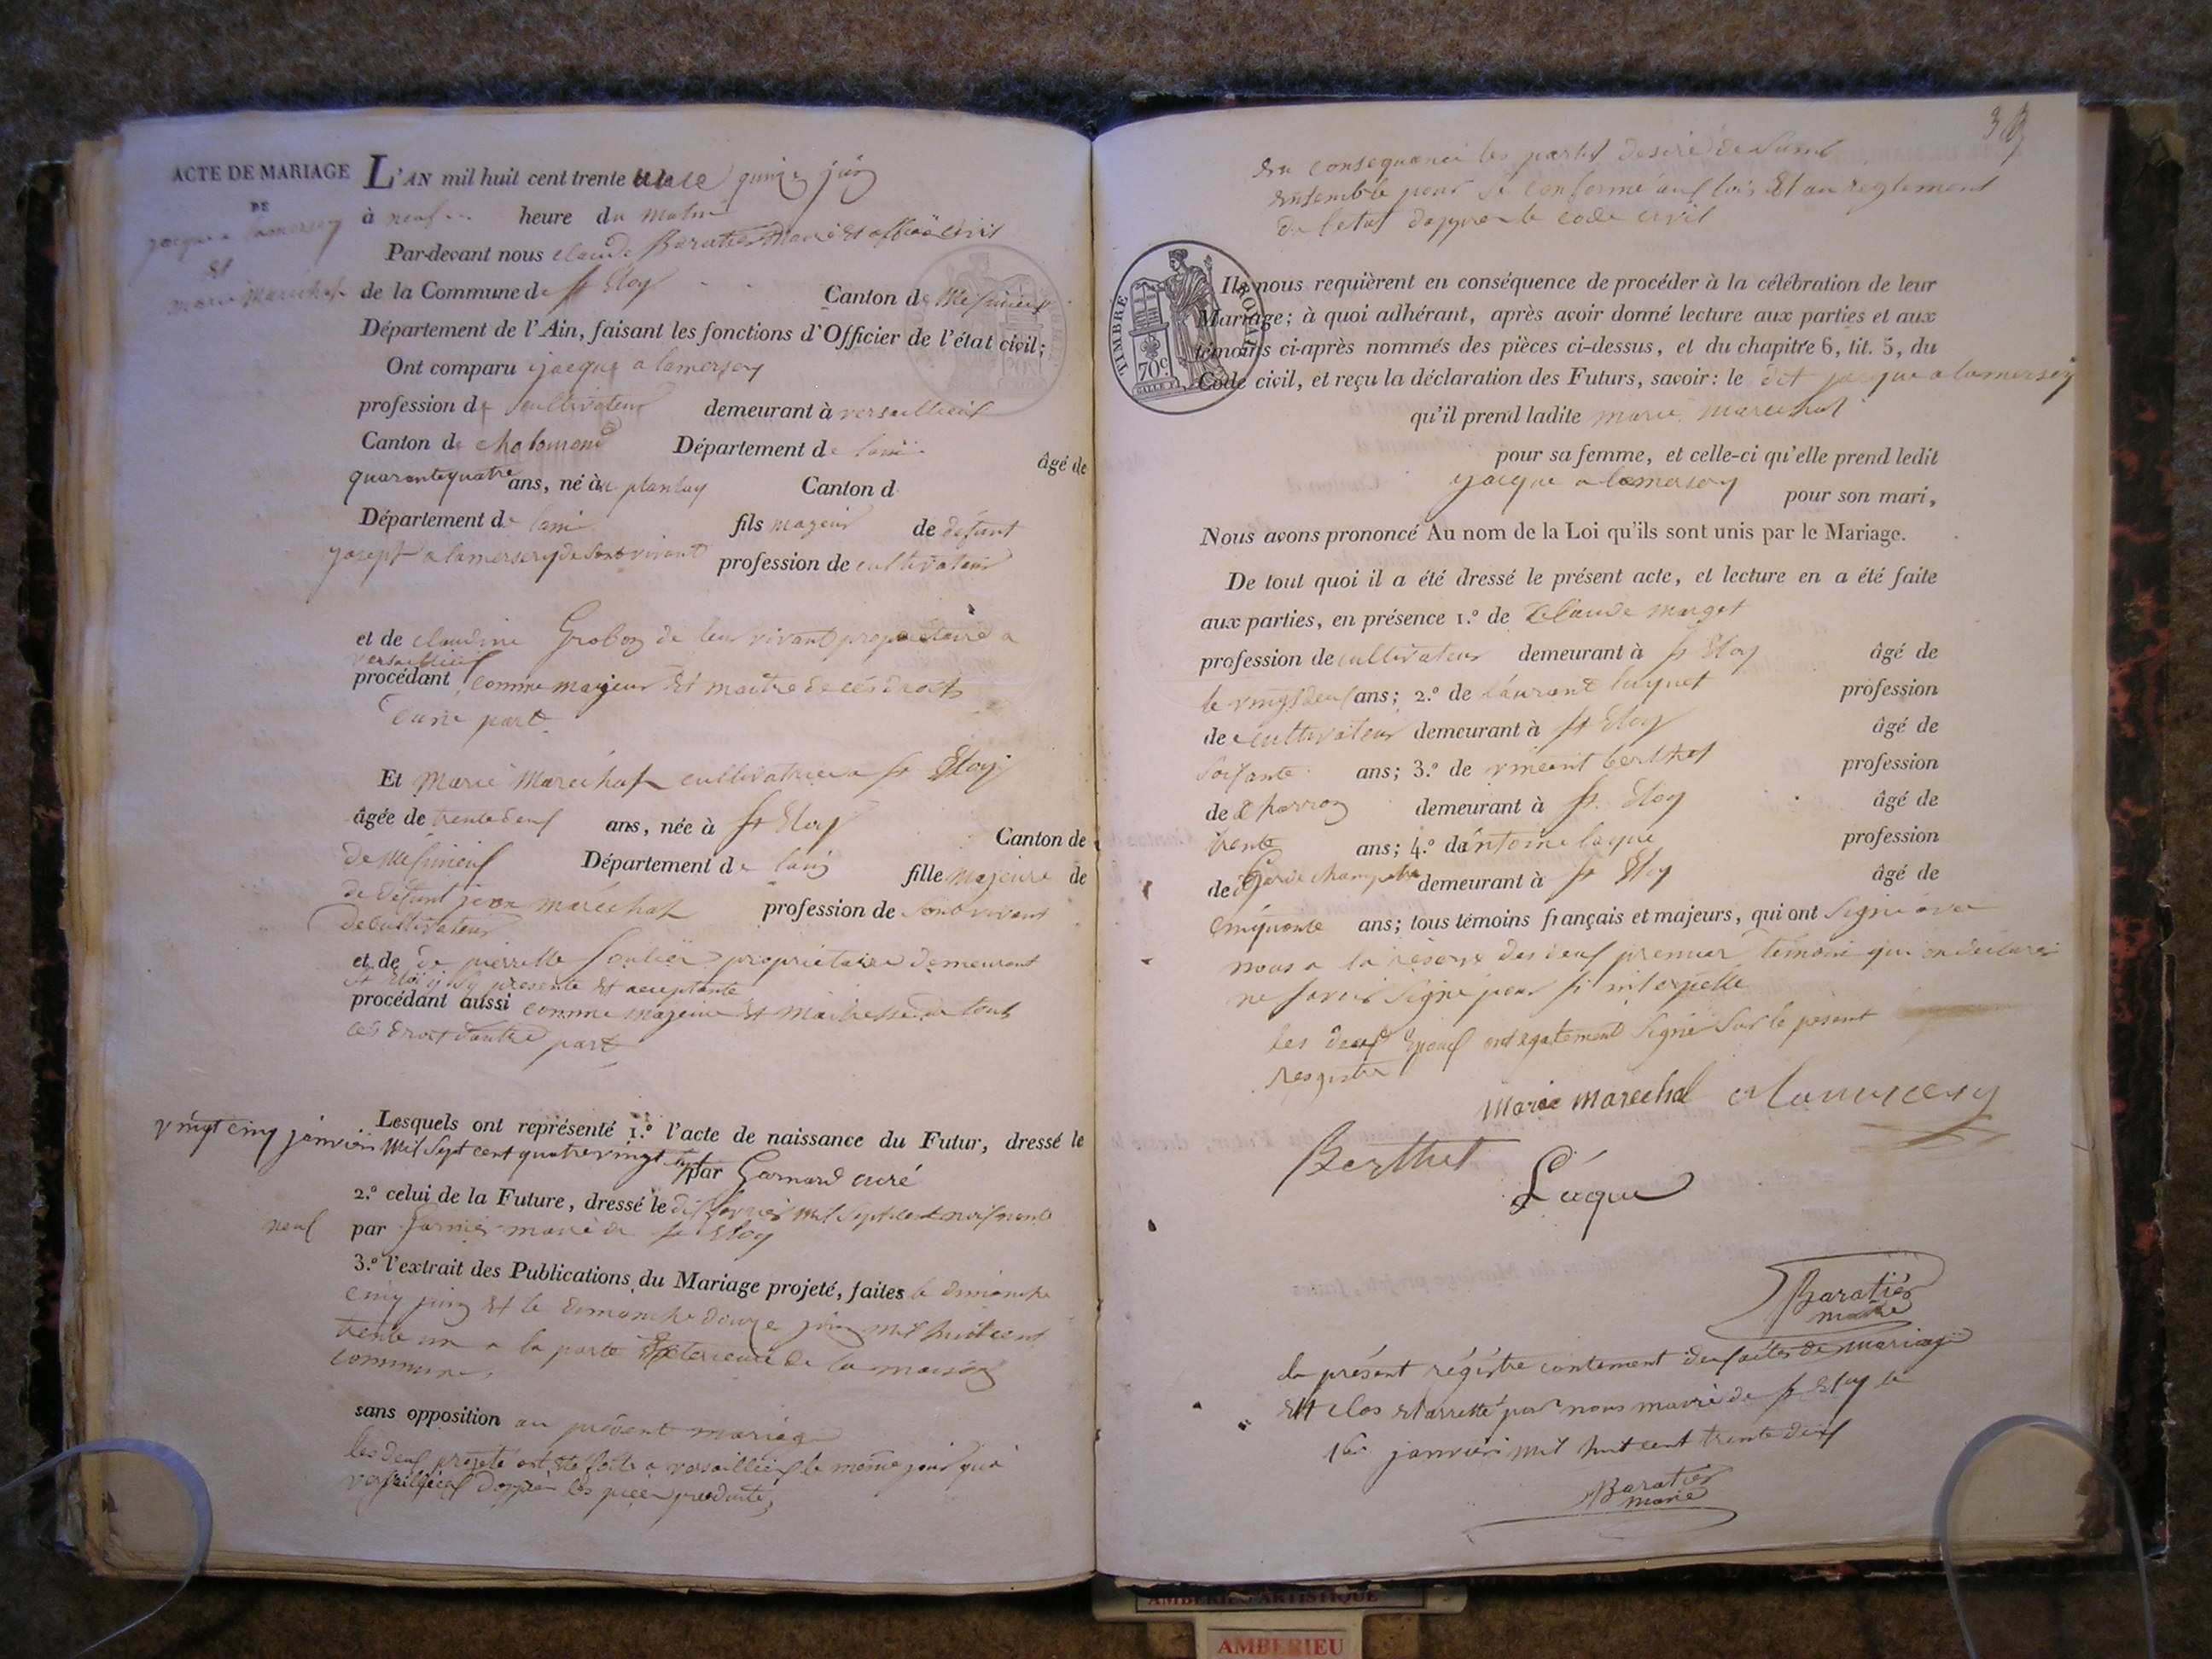 ACTE DE MARIAGE
DE
jacque alamersery
et
marie marechal
L'AN mil huit cent trente quinze juin
à neuf heure du matin
Par-devant nous claude Baratier maire et officié civil
de la Commune de st Eloy Canton de Messimieux
Département de l'Ain, faisant les fonctions d'Officier de l'état civil;
Ont comparu jacque alamersery
profession de cultivateur demeurant à versaillieux
Canton de chalamond Département de lain âgé de
quarantequatre ans, né au plantay Canton d
Département de lain fils majeur de défunt
joseph alamersery de sont vivant profession de cultivateur
et de claudine Grobon de leur vivant propriétaire a
versaillieux
procédant comme majeur et maitre de cés droits
dune part
Et Marie Maréchal cultivatrice a st Eloy
âgée de trentedeux ans, née à st Eloy Canton de
de Messimieux Département de lain fille majeure de
de défunt jean maréchal profession de sont vivant
de cultivateur
et de de pierrette propriétaire demeurant
st Eloi presente et aceptante
procédant aussi comme majeure et maitresse de tout
ces droit dautre part
Lesquels ont représenté 1.º l'acte de naissance du Futur, dressé le
vingt cinq janvier mil sept cent quatrevingt sept par Garnard curé
2.º celui de la Future, dressé le mil sept cent
neuf par Garnier maire de st Eloy
3.º l'extrait des Publications du Mariage projeté, faites le dimanche
cinq juin et le dimanche douze juin mil huit cent
trente un a la porte Exterieure de la maison
commune
sans opposition au présent mariage
les deux projeté ont été faite a versaillieux le même jour qua
versaillieux dapprès les piece produite,
3
En consequance les partis desire de sunir
ensemble pour se conforme aux lois et au reglement
de letat dapprer le code civil
TIMBRE ROYAL
70 C.
Ils nous requièrent en conséquence de procéder à la célébration de leur
Mariage; à quoi adhérant, après avoir donné lecture aux parties et aux
témoins ci-après nommés des pièces ci-dessus, et du chapitre 6, tit. 5, du
Code civil, et reçu la déclaration des Futurs, savoir: le dit jacque alamersery
qu'il prend ladite marie marechal
pour sa femme, et celle-ci qu'elle prend ledit
jacque alamersery pour son mari,
Nous avons prononcé Au nom de la Loi qu'ils sont unis par le Mariage.
De tout quoi il a été dressé le présent acte, et lecture en a été faite
aux parties, en présence 1.º de Claude marget
profession de cultivateur demeurant à st Eloy âgé de
ans; 2.º de laurent luquet profession
de cultivateur demeurant à st Eloy âgé de
soisante ans; 3.º de vincent berthet profession
de charron demeurant à st. Eloy âgé de
trente ans; 4.º dantoine laque profession
de Garde champetre demeurant à st Eloy âgé de
cinquante ans; tous témoins français et majeurs, qui ont signé avec
nous a la réserve des deux premier témoin qui on declaré
ne savoir signé pour si interpellé
les deux époux ont egalement signé sur le présent
resgistre
Marie marechal alamercery
Berthet
Léque
Baratier
maire
le présent régistre contement deux actes de mariage
Est clos et arretté par nous maire de st Eloy le
1er janvier mil huit cent trente deux
Baratier
maire
AMBERIEU ARTISTIQUE
AMBERIEU